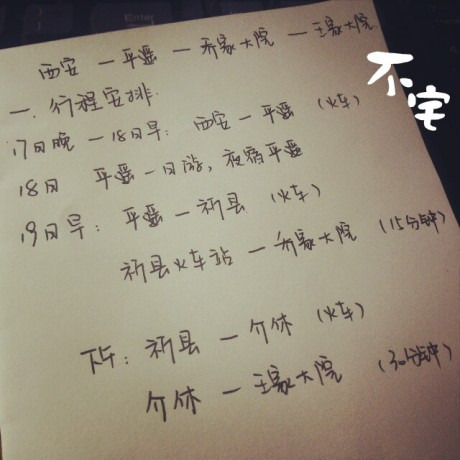 西安 — 平遥 — 乔家大院 — 王家大院
不宅
一. 行程安排.
17日晚 — 18日早: 西安 — 平遥 (火车)
18日 平遥一日游, 夜宿平遥
19日早: 平遥 — 祁县 (火车)
祁县火车站 — 乔家大院 (15分钟)
下午: 祁县 — 介休 (火车)
介休 — 王家大院 (30分钟)